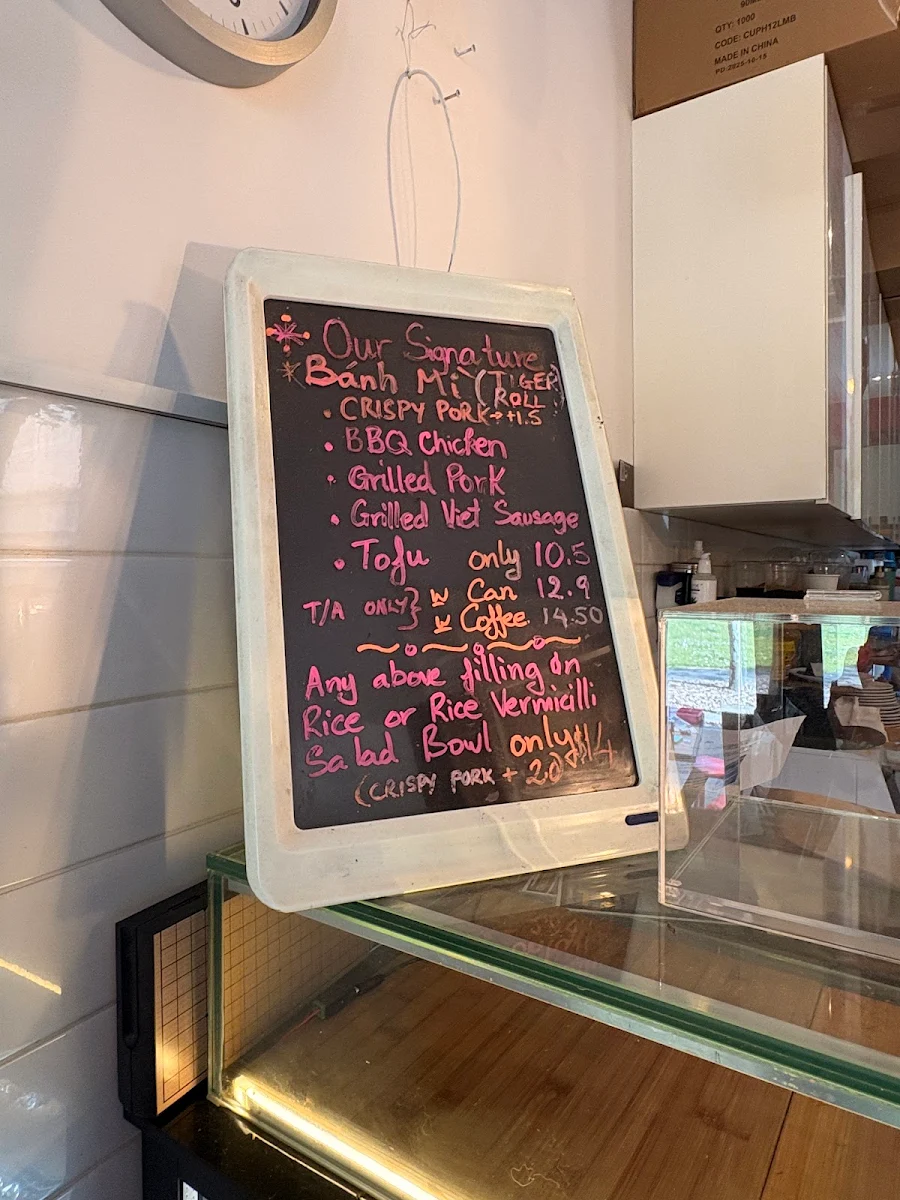 90ML
QTY: 1000
CODE: CUPH12LMB
MADE IN CHINA
PD:2025-10-15
Our Signature
Bánh Mì (TIGER ROLL)
• CRISPY PORK → +1.5
• BBQ Chicken
• Grilled Pork
• Grilled Viet Sausage
• Tofu only 10.5
T/A ONLY} w Can 12.9
w Coffee 14.50
Any above filling on
Rice or Rice Vermicilli
Salad Bowl only $14
(CRISPY PORK +